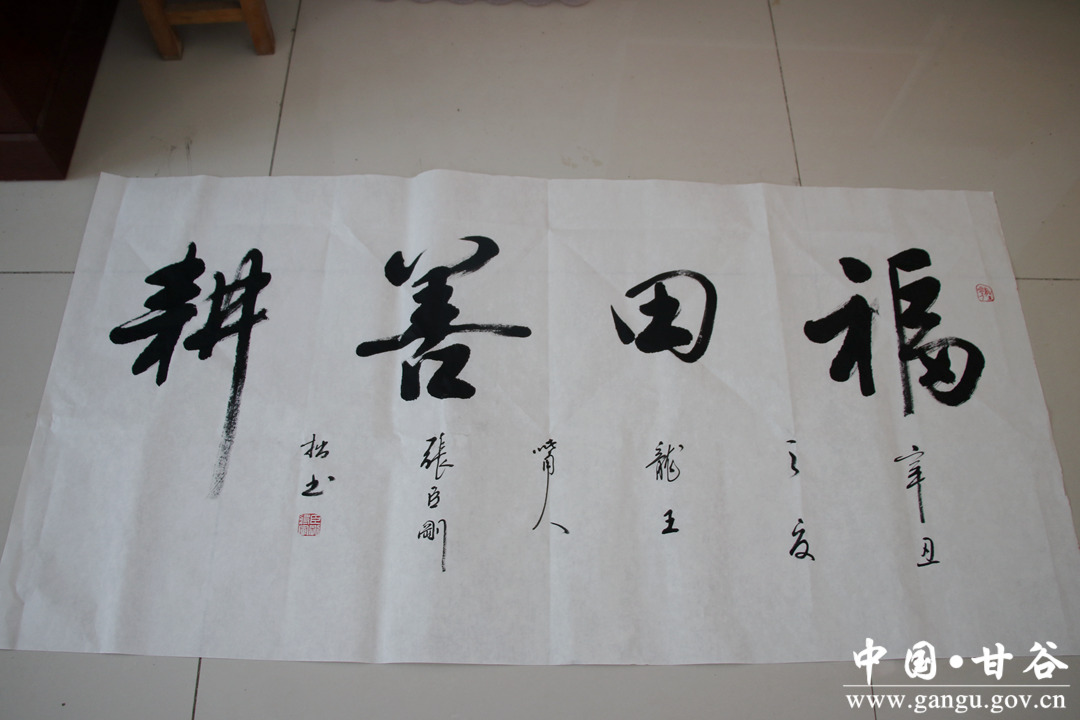 福田善耕
辛丑
之夏
龍王
嘴人
張臣剛
拙书
中国·甘谷
www.gangu.gov.cn